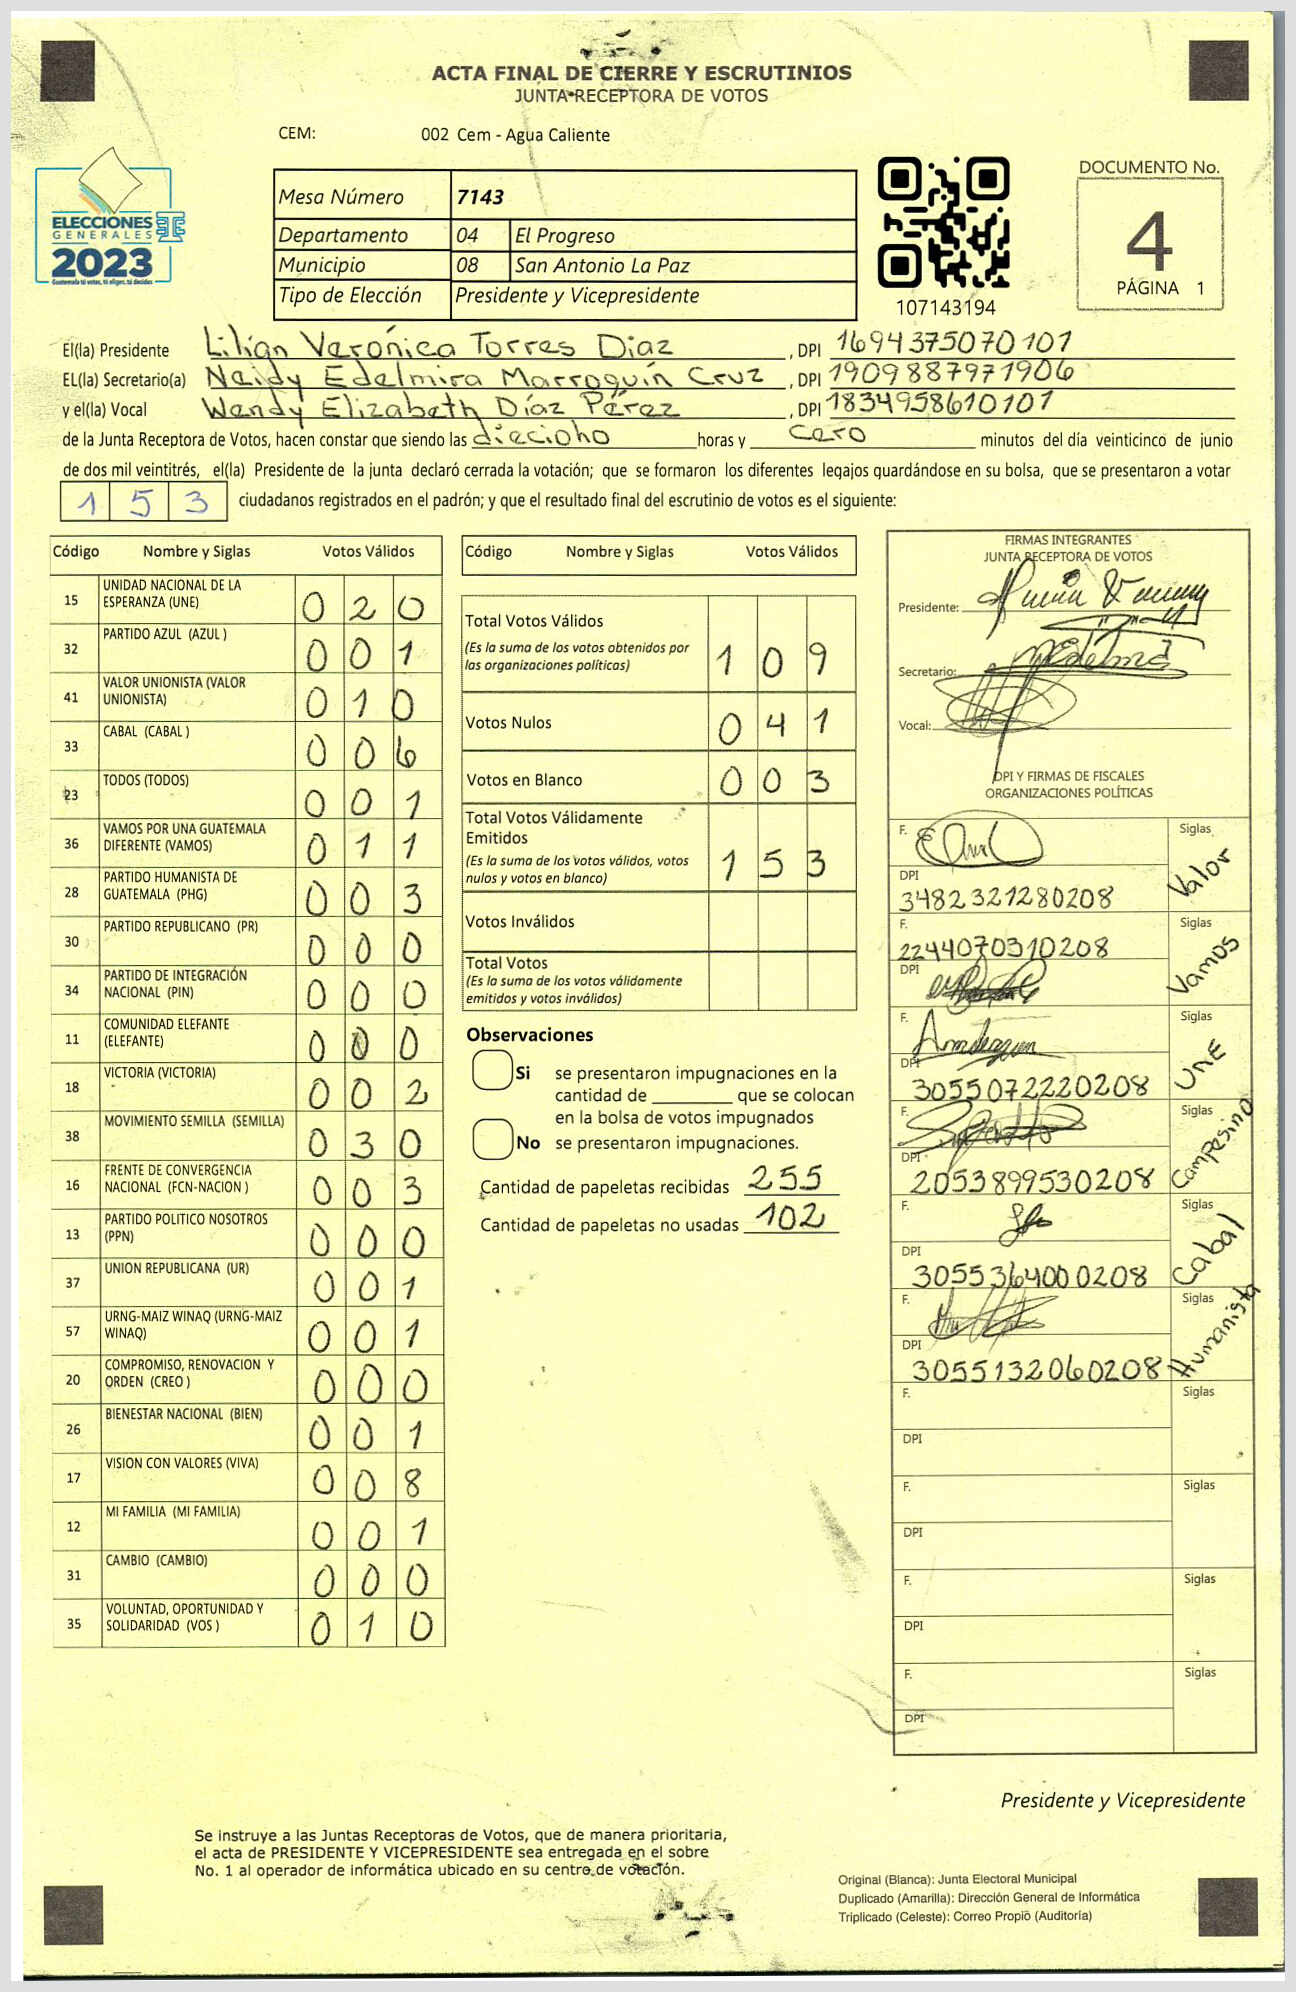 ACTA FINAL DE CIERRE Y ESCRUTINIOS
JUNTA RECEPTORA DE VOTOS
CEM: 002 Cem - Agua Caliente
ELECCIONES
GENERALES
2023
Guatemala tú votas, tú eliges, tú decides
Mesa Número 7143
Departamento 04 El Progreso
Municipio 08 San Antonio La Paz
Tipo de Elección Presidente y Vicepresidente
107143194
DOCUMENTO No.
4
PÁGINA 1
El(la) Presidente Lilian Verónica Torres Diaz, DPI 1694375070101
EL(la) Secretario(a) Neidy Edelmira Marroquín Cruz, DPI 1909887971906
y el(la) Vocal Wendy Elizabeth Díaz Pérez, DPI 1834958610101
de la Junta Receptora de Votos, hacen constar que siendo las diecioho horas y cero minutos del día veinticinco de junio
de dos mil veintitrés, el(la) Presidente de la junta declaró cerrada la votación; que se formaron los diferentes legajos quardándose en su bolsa, que se presentaron a votar
153 ciudadanos registrados en el padrón; y que el resultado final del escrutinio de votos es el siguiente:
Código Nombre y Siglas Votos Válidos
15 UNIDAD NACIONAL DE LA ESPERANZA (UNE) 020
32 PARTIDO AZUL (AZUL ) 001
41 VALOR UNIONISTA (VALOR UNIONISTA) 010
33 CABAL (CABAL ) 006
23 TODOS (TODOS) 001
36 VAMOS POR UNA GUATEMALA DIFERENTE (VAMOS) 011
28 PARTIDO HUMANISTA DE GUATEMALA (PHG) 003
30 PARTIDO REPUBLICANO (PR) 000
34 PARTIDO DE INTEGRACIÓN NACIONAL (PIN) 000
11 COMUNIDAD ELEFANTE (ELEFANTE) 000
18 VICTORIA (VICTORIA) 002
38 MOVIMIENTO SEMILLA (SEMILLA) 030
16 FRENTE DE CONVERGENCIA NACIONAL (FCN-NACION ) 003
13 PARTIDO POLITICO NOSOTROS (PPN) 000
37 UNION REPUBLICANA (UR) 001
57 URNG-MAIZ WINAQ (URNG-MAIZ WINAQ) 001
20 COMPROMISO, RENOVACION Y ORDEN (CREO ) 000
26 BIENESTAR NACIONAL (BIEN) 001
17 VISION CON VALORES (VIVA) 008
12 MI FAMILIA (MI FAMILIA) 001
31 CAMBIO (CAMBIO) 000
35 VOLUNTAD, OPORTUNIDAD Y SOLIDARIDAD (VOS ) 010
Código Nombre y Siglas Votos Válidos
Total Votos Válidos 109
(Es la suma de los votos obtenidos por las organizaciones políticas)
Votos Nulos 041
Votos en Blanco 003
Total Votos Válidamente Emitidos 153
(Es la suma de los votos válidos, votos nulos y votos en blanco)
Votos Inválidos
Total Votos
(Es la suma de los votos válidamente emitidos y votos inválidos)
Observaciones
Si se presentaron impugnaciones en la
cantidad de ________ que se colocan
en la bolsa de votos impugnados
No se presentaron impugnaciones.
Cantidad de papeletas recibidas 255
Cantidad de papeletas no usadas 102
FIRMAS INTEGRANTES
JUNTA RECEPTORA DE VOTOS
Presidente:
Secretario:
Vocal:
DPI Y FIRMAS DE FISCALES
ORGANIZACIONES POLÍTICAS
F. Siglas Valor
DPI 3482321280208
F. 2244070310208 Siglas Vamos
DPI
F. Siglas UNE
DPI 3055072220208
F. Siglas Campesino
DPI 2053899530208
F. Siglas Cabal
DPI 3055364000208
F. Siglas Humanista
DPI 3055132060208
F. Siglas
DPI
F. Siglas
DPI
F. Siglas
DPI
F. Siglas
DPI
Presidente y Vicepresidente
Se instruye a las Juntas Receptoras de Votos, que de manera prioritaria,
el acta de PRESIDENTE Y VICEPRESIDENTE sea entregada en el sobre
No. 1 al operador de informática ubicado en su centro de votación.
Original (Blanca): Junta Electoral Municipal
Duplicado (Amarilla): Dirección General de Informática
Triplicado (Celeste): Correo Propio (Auditoría)